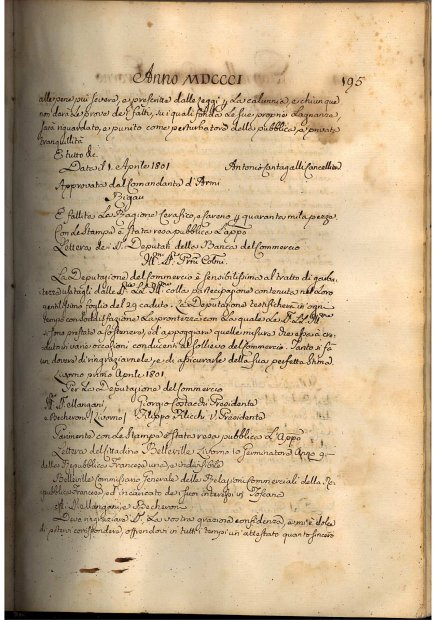 Anno MDCCCI
195
alle pene più severe, e prescritte dalle Leggi p. La calunnia, e chiunque
non darà Le prove de' fatti, su i quali fonda Le sue proprie Lagnanze
sarà riguardato, e punito come perturbatore della pubblica, e privata
tranquillità
E tutto &c.
Data il 1. Aprile 1801 Antonio Cantagalli Cancelliere
Approvata dal Comandante d'Armi
Bigau
È fallita La Ragione Cerafico, e Sareno p. quaranta mila pezze.
Con Le Stampe è stata resa pubblica L'appo
Lettera dei Deputati della Banca del Commercio
La Deputazione del Commercio è sensibilissima al tratto di
colla partecipazione contenuta nel Loro
gentilissimo foglio del 29 caduto. La Deputazione testificherà in ogni
tempo con soddisfazione La prontezza con La quale Le
si sono prestate a sostenere, ed appoggiare quelle misure, che essa ha cre
duto in varie occasioni conducenti al sollievo del Commercio. Tanto si fà
un dovere di ringraziarnele, e di assicurarle della sua perfetta Stima
Livorno primo Aprile 1801.
Per La Deputazione del Commercio
Mellangani Giorgio Presidente
e Becheroni (Livorno) Filippo Filicchi V. Presidente
Parimente con Le Stampe è stata resa pubblica L'Appo
Lettera del Cittadino Belleville Livorno 10 Germinatore Anno 9.
della Repubblica Francese una, e indivisibile
Belleville Commissario Generale delle Relazioni Commerciali della Re
pubblica Francese, ed incaricato de' suoi interessi in Toscana
Mellangani, e Becheroni
Devo ringraziare La vostra graziosa confidenza,
di potervi corrispondere, offrendovi in tutti i tempi un'attestato quanto sincero